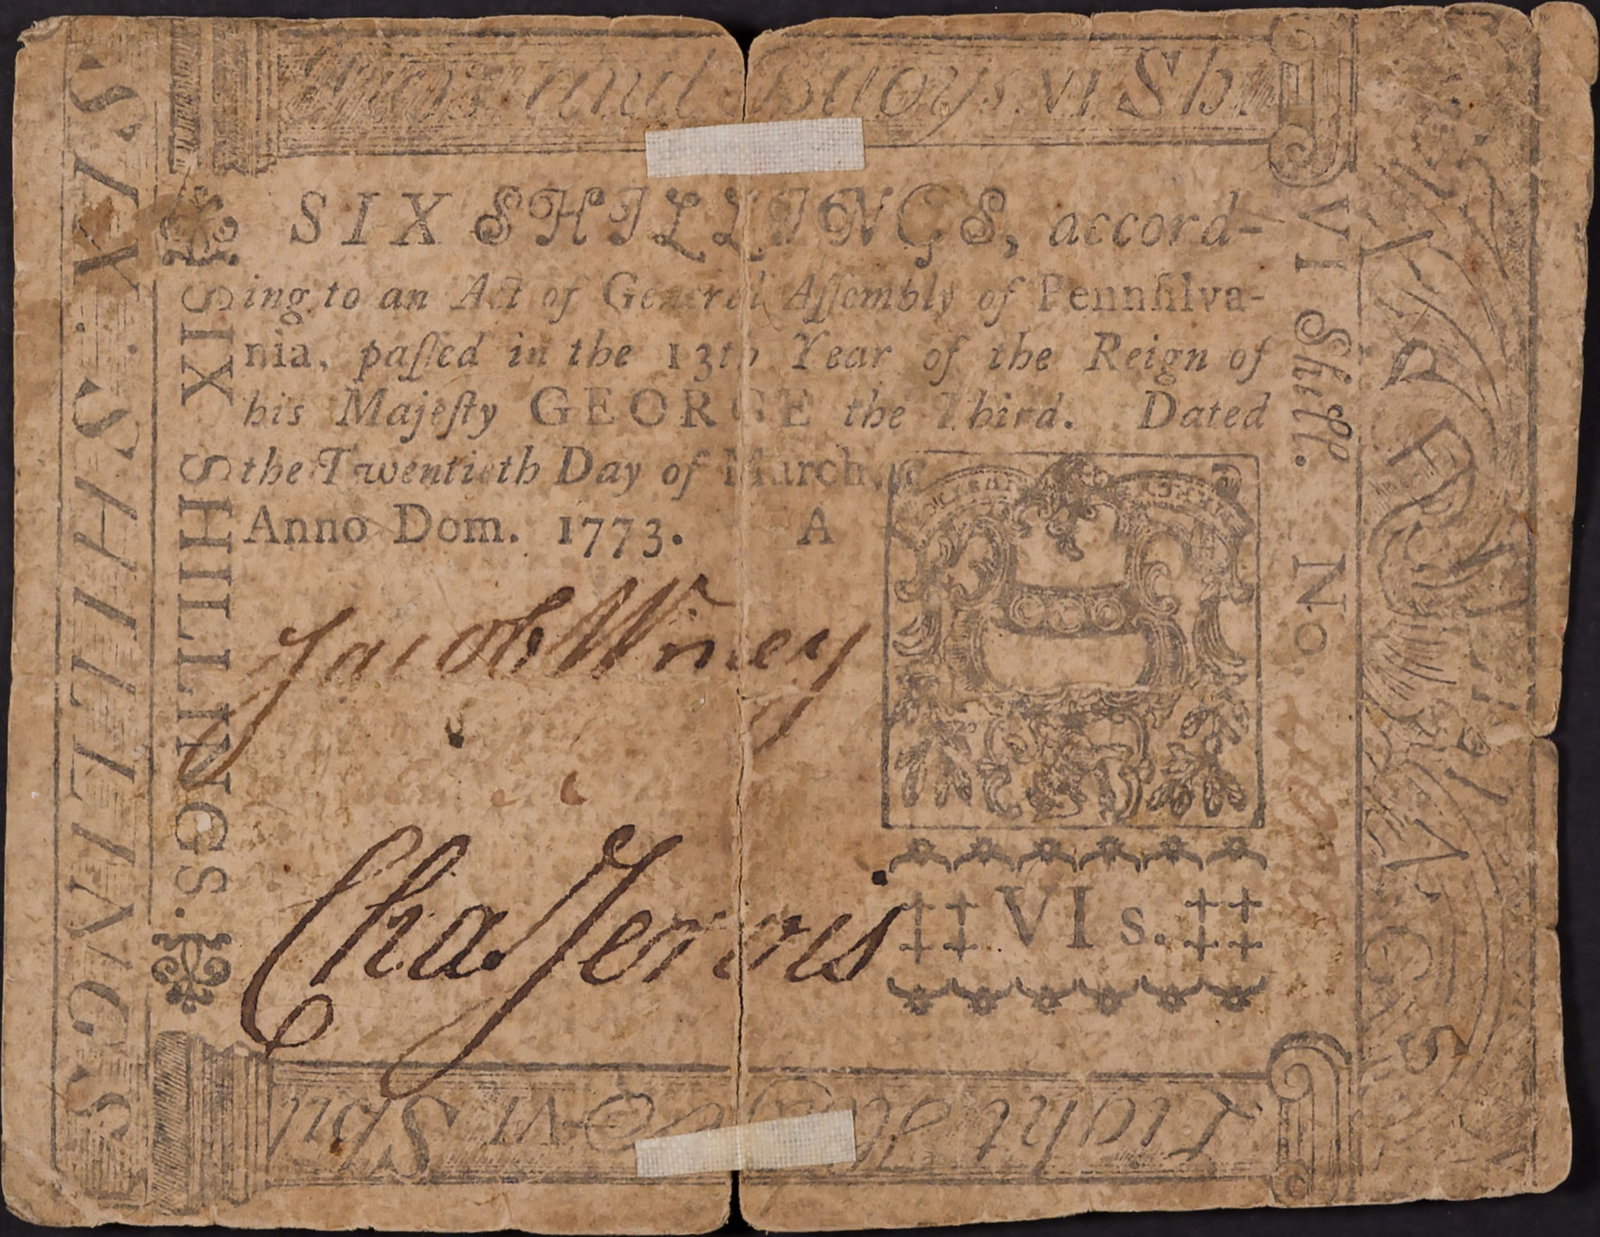 Buoys. VI Sh
SIX SHILLINGS, accord-
ing to an Act of General Aſſembly of Pennſilva-
nia, paſſed in the 13th Year of the Reign of
his Majeſty GEORGE the Third. Dated
the Twentieth Day of March,
Anno Dom. 1773. A
Jacob
Chas Jervis
VI s.
Light VI Sh
SIX SHILLINGS
SIX SHILLINGS.
VI Shill. No
SIX SHILLINGS